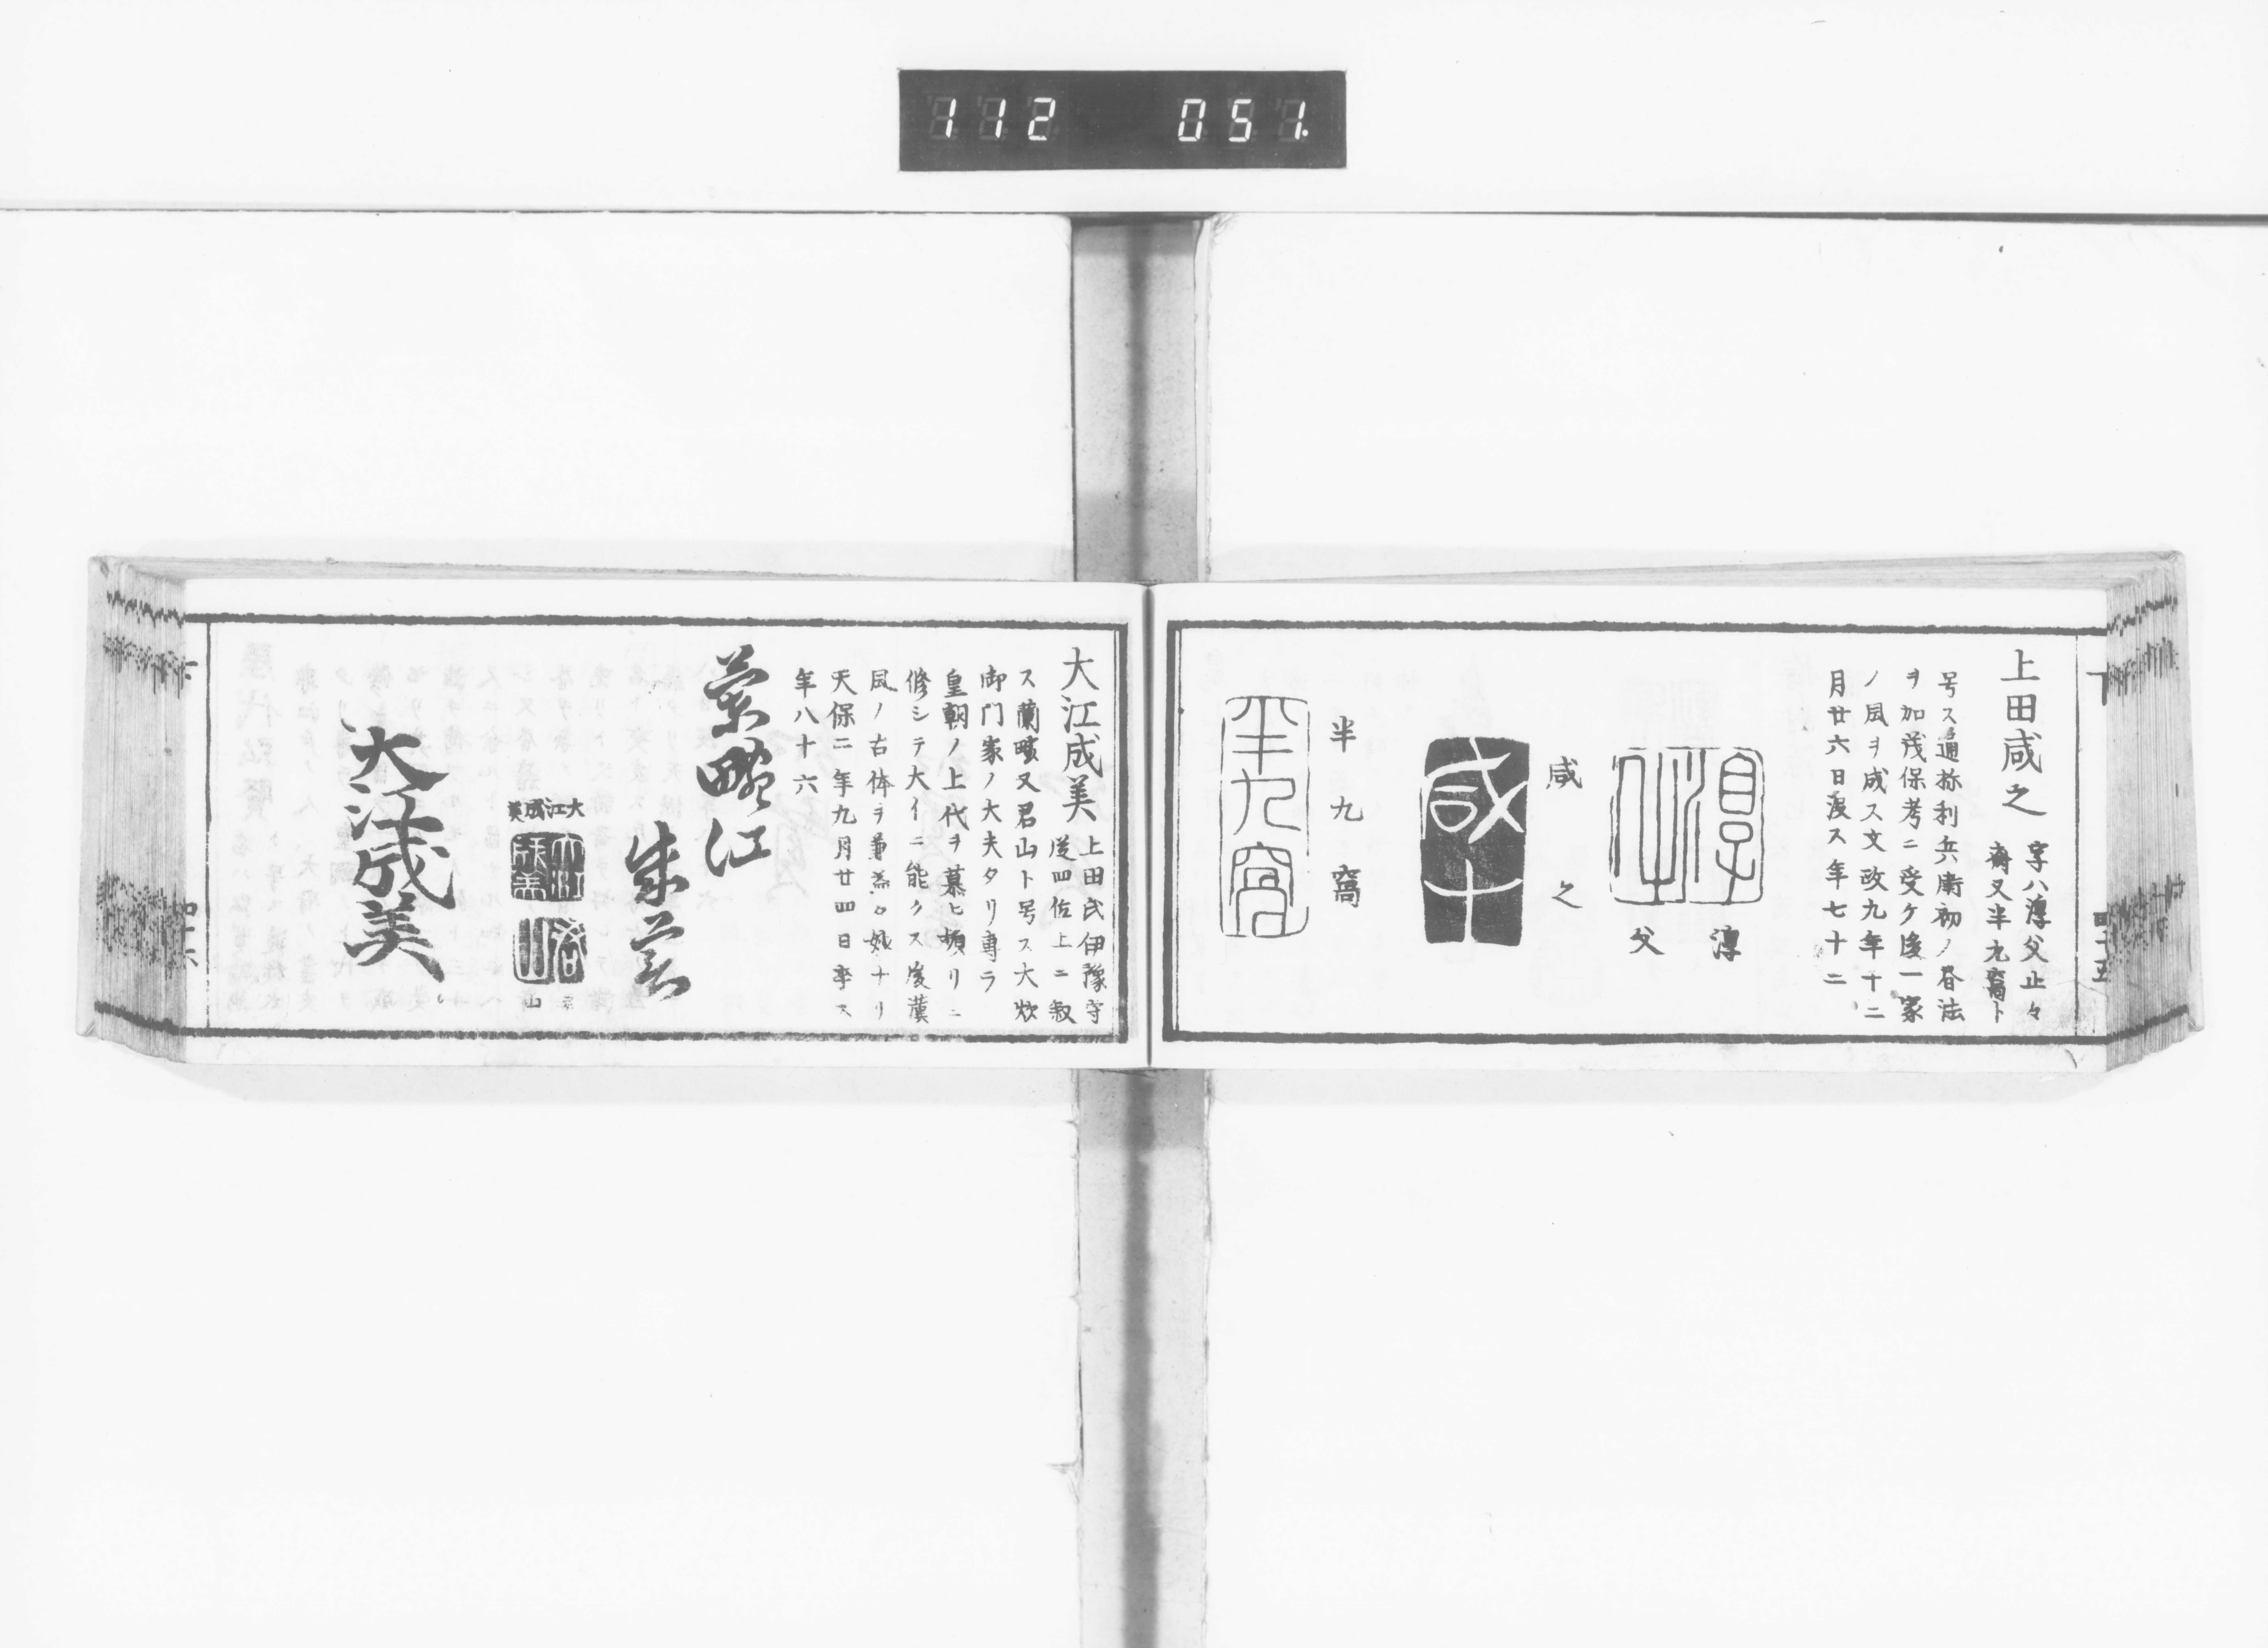 112 051.
下
四十五
上田咸之 字ハ淳父止々
斎又半九窩ト
号ス通称利兵衛初ノ名法
ヲ加茂保考ニ受ケ後一家
ノ風ヲ成ス文政九年十二
月廿六日没ス年七十二
淳
父
咸之
半九窩
大江成美 上田氏伊豫守
従四位上ニ叙
ス蘭畡又君山ト号ス大炊
御門家ノ大夫タリ専ラ
皇朝ノ上代ヲ慕ヒ頻リニ
修シテ大イニ能クス後漢
風ノ古体ヲ兼
天保二年九月廿四日卒ス
年八十六
江
大江成美
君山
大江成美
四十六